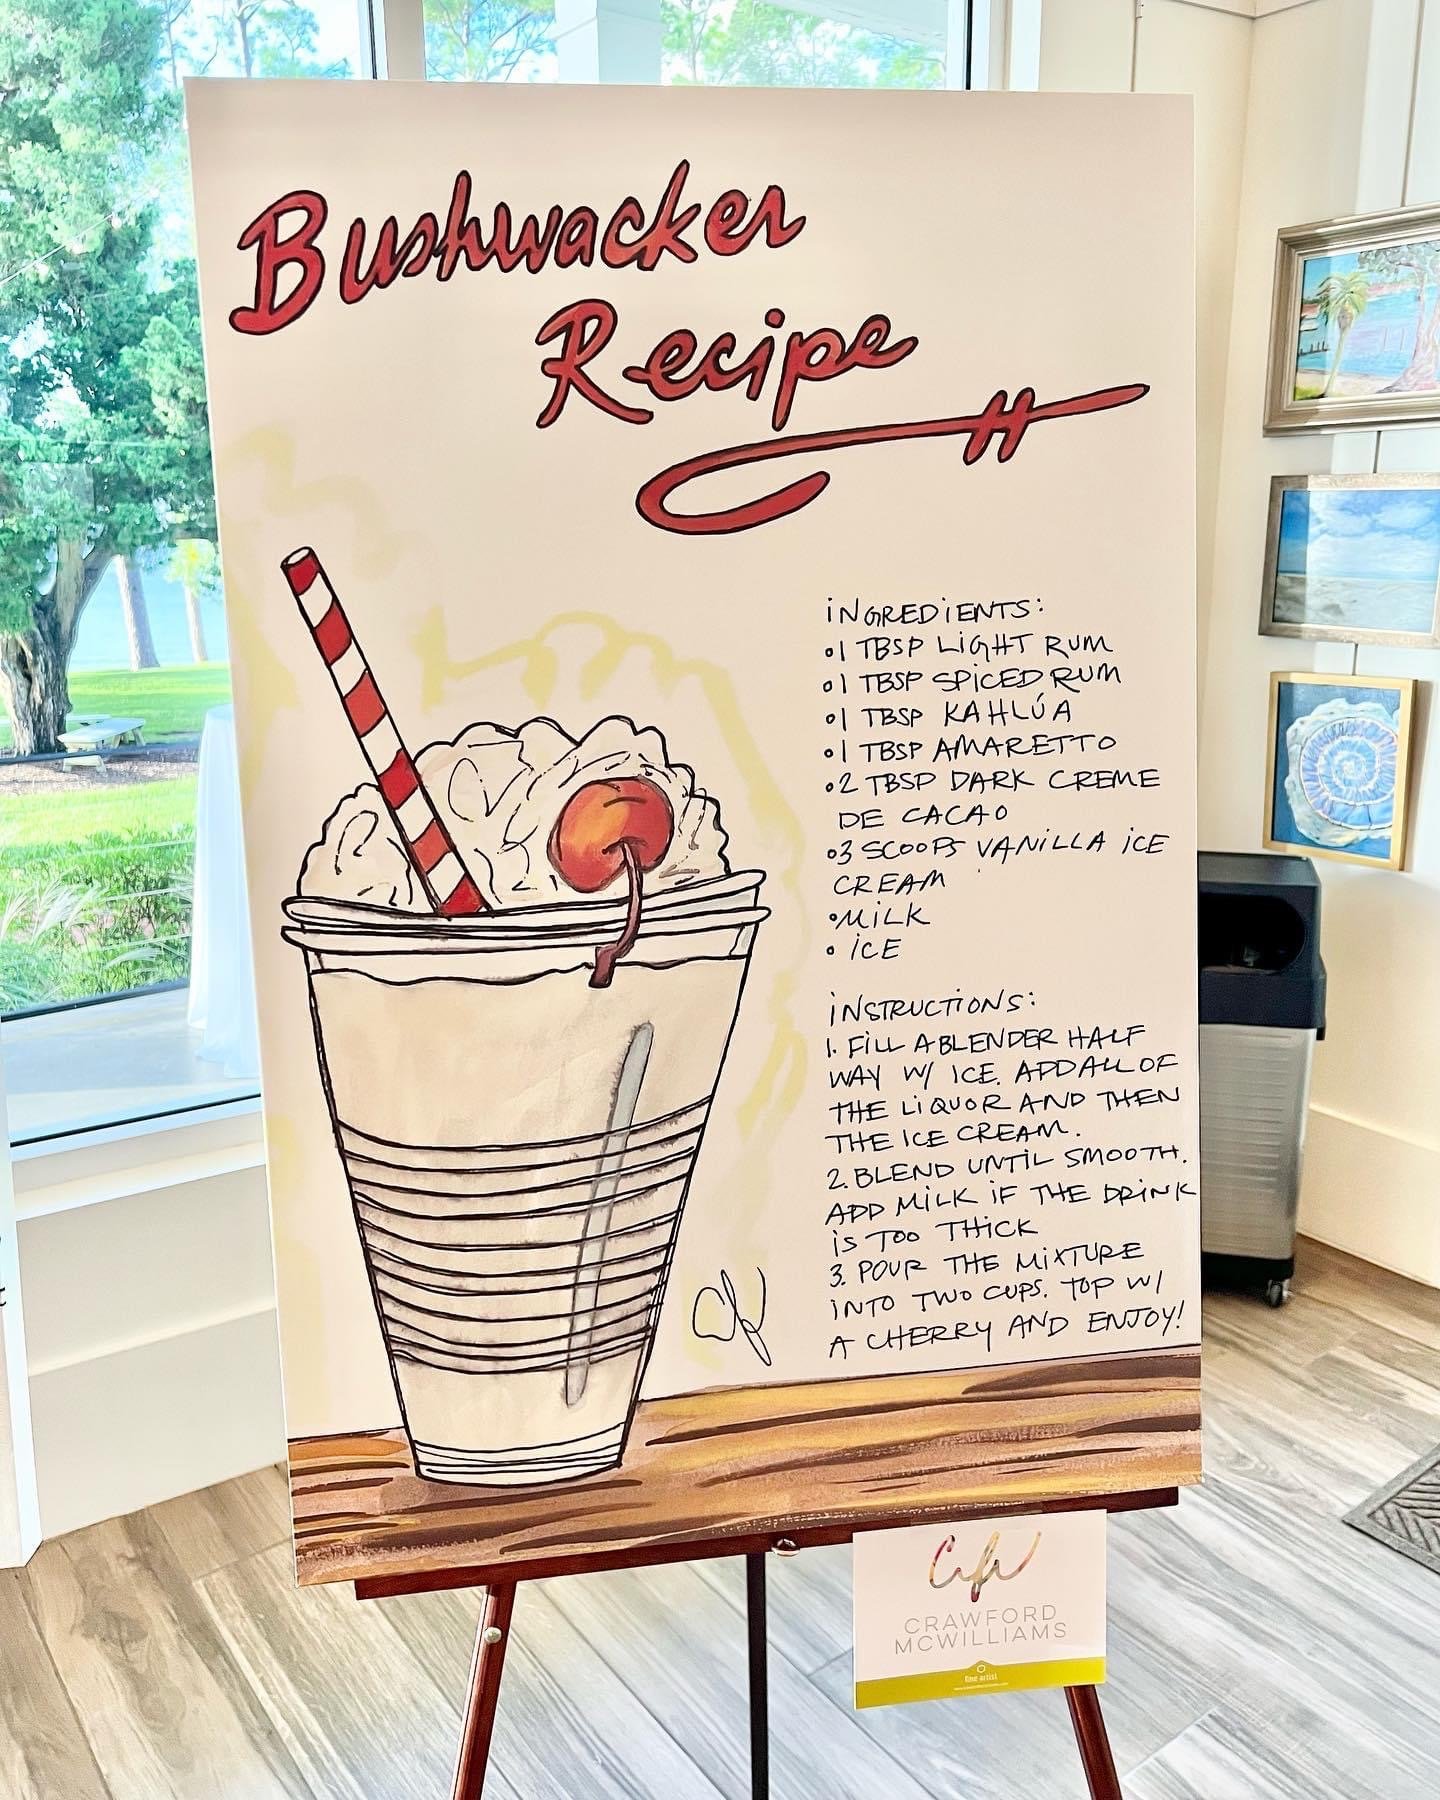 Bushwacker
Recipe
INGREDIENTS:
• 1 TBSP LIGHT RUM
• 1 TBSP SPICED RUM
• 1 TBSP KAHLÚA
• 1 TBSP AMARETTO
• 2 TBSP DARK CREME
DE CACAO
• 3 SCOOPS VANILLA ICE
CREAM
• MILK
• ICE
INSTRUCTIONS:
1. FILL A BLENDER HALF
WAY W/ ICE. ADD ALL OF
THE LIQUOR AND THEN
THE ICE CREAM.
2. BLEND UNTIL SMOOTH.
ADD MILK IF THE DRINK
IS TOO THICK
3. POUR THE MIXTURE
INTO TWO CUPS. TOP W/
A CHERRY AND ENJOY!
CRAWFORD
MCWILLIAMS
fine artist